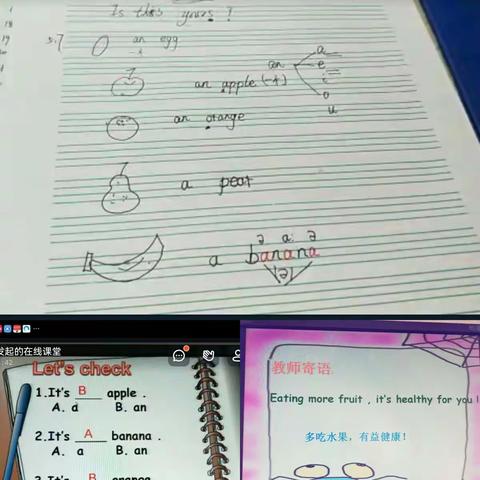 18
19
Is this yours ?
5.7
an egg
an apple (一个)
an
a
e
i
o
u
an orange
a pear
a banana
ə a: ə
发起的在线课堂
Let's check
1.It's B apple .
A. a B. an
2.It's A banana .
A. a B. an
3.It's B orange
教师寄语
Eating more fruit , it's healthy for you !
多吃水果，有益健康！